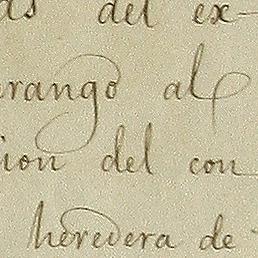 as del ex-
rango al
ion del con
heredera de